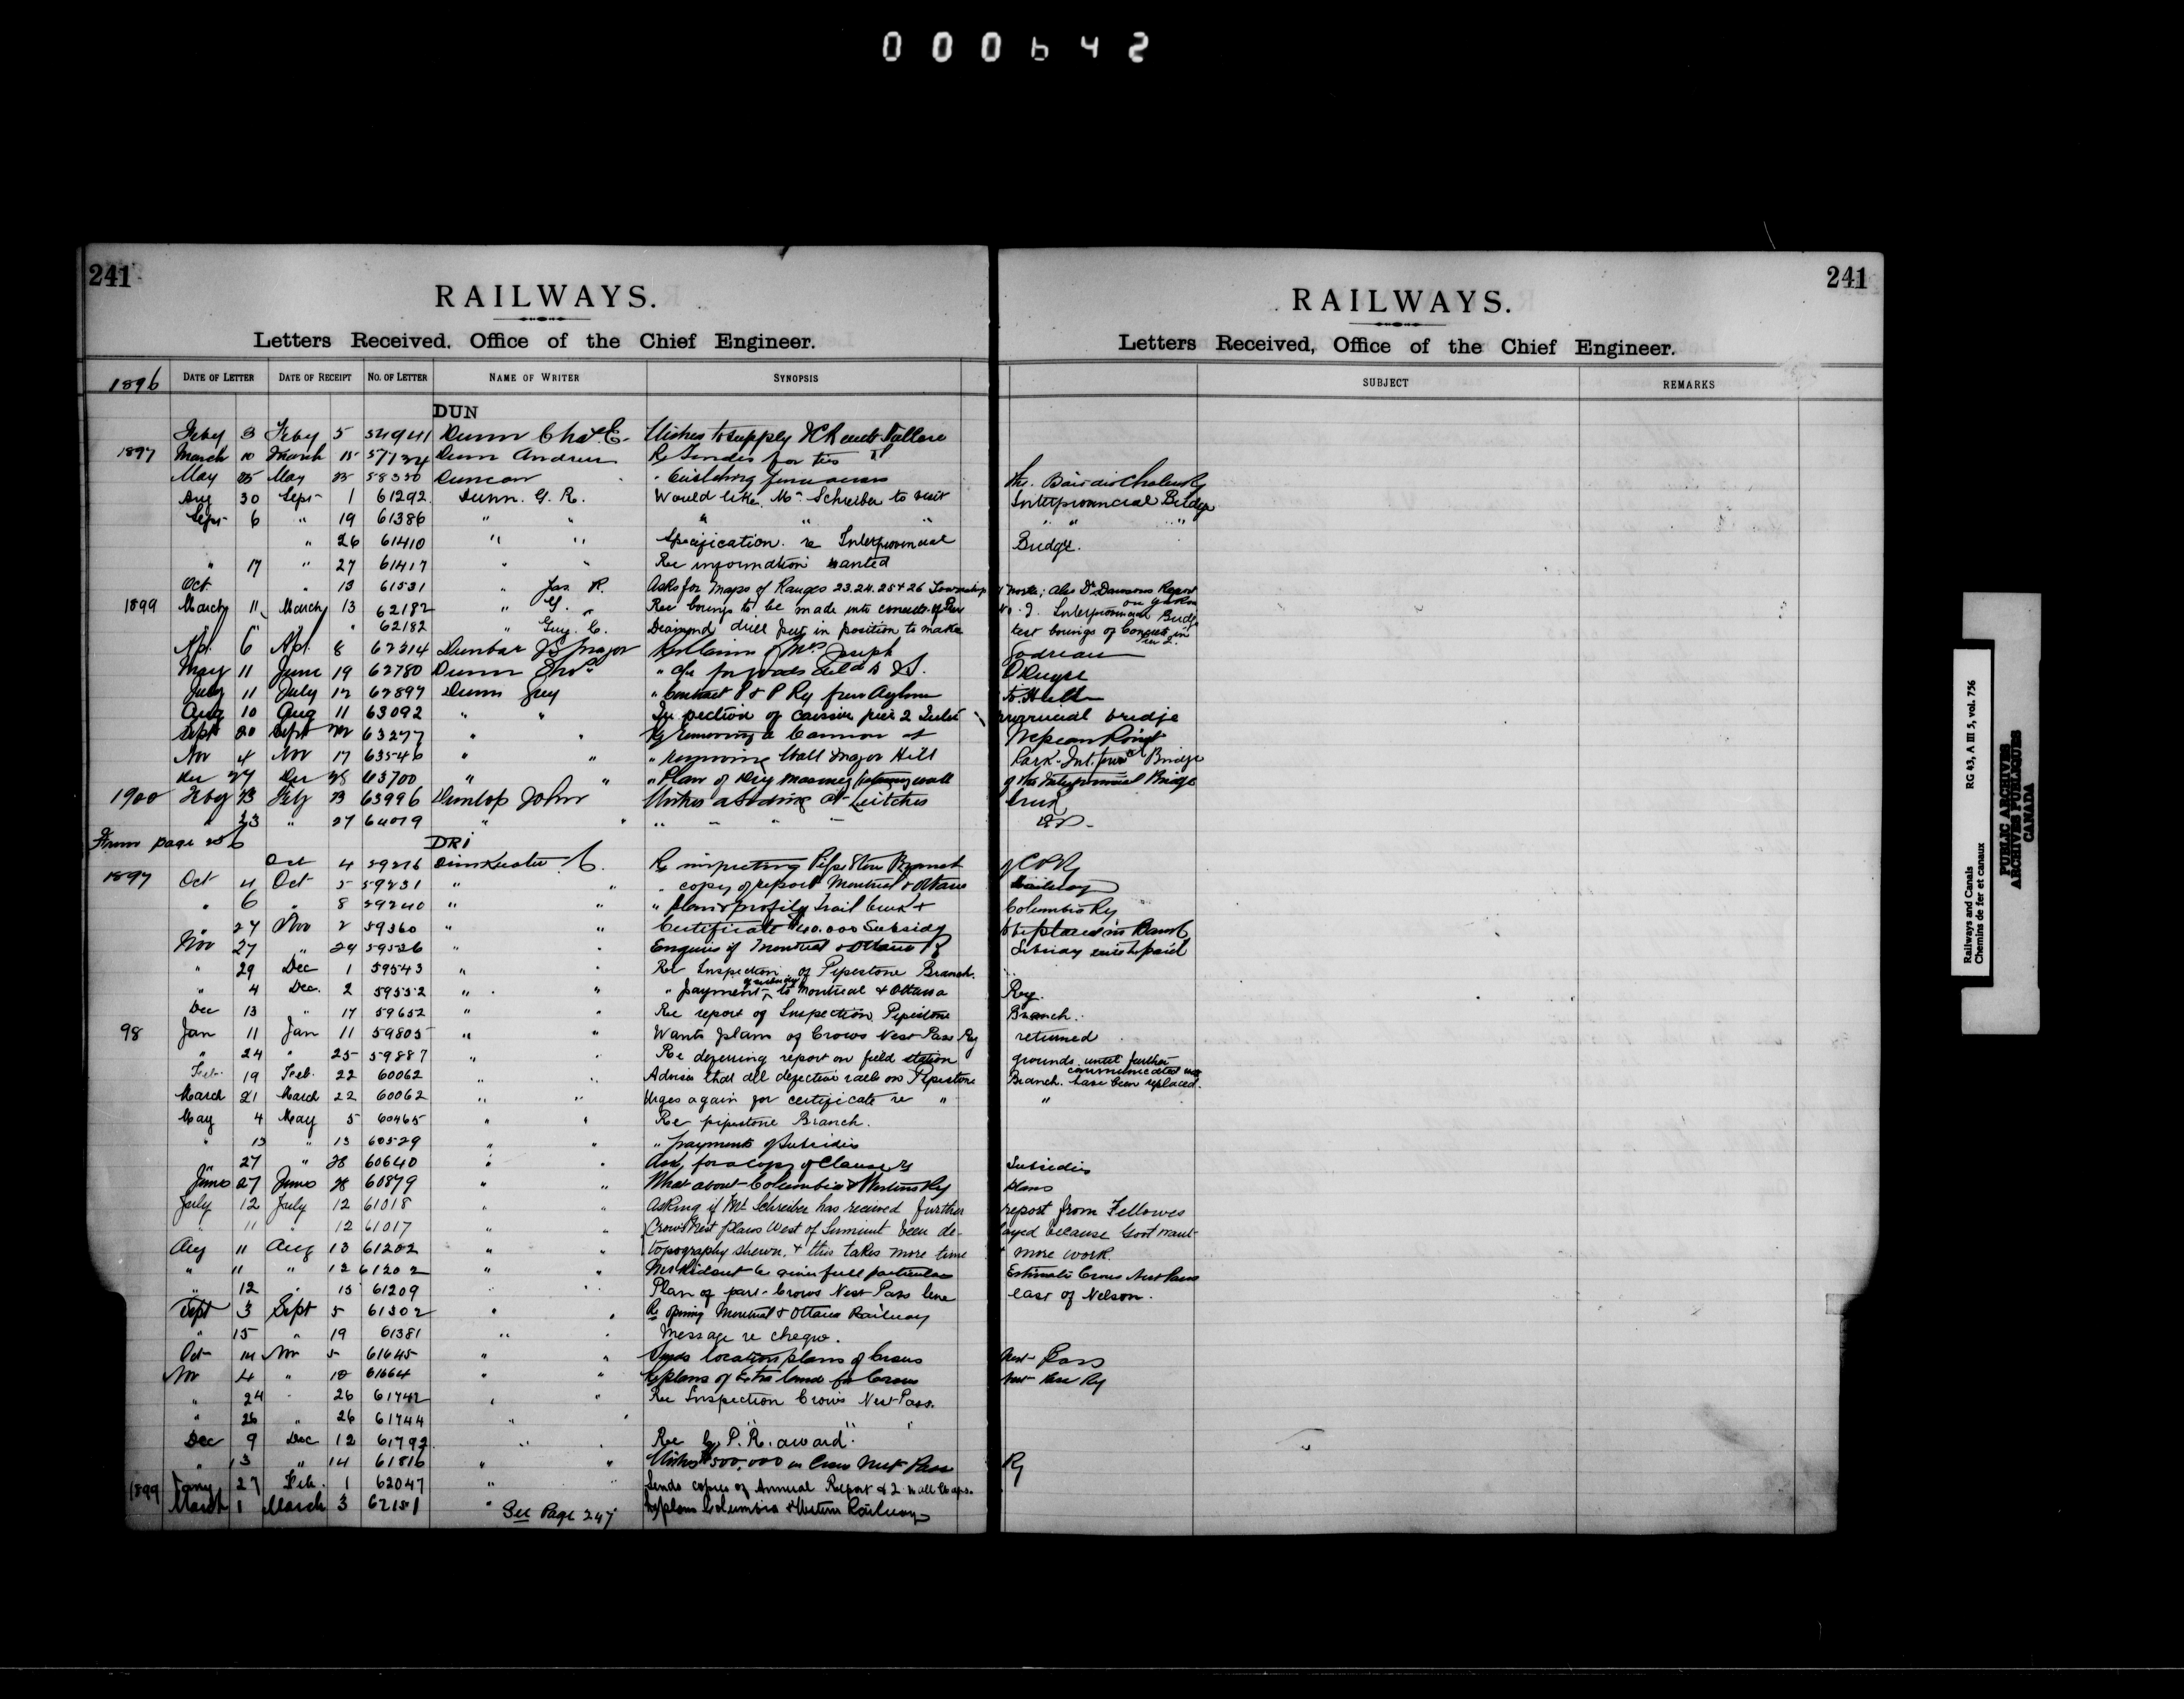 000642
241
RAILWAYS.
Letters Received. Office of the Chief Engineer.
241
RAILWAYS.
Letters Received, Office of the Chief Engineer.
1896 DATE OF LETTER DATE OF RECEIPT No. OF LETTER NAME OF WRITER SYNOPSIS SUBJECT REMARKS
DUN
Feby 3 Feby 5 54941 Dunn Chas. E. Wishes to supply ICR
1897 March 10 March 15 Dunn Andrew Re Tender for ties
May 25 May 58330 Duncan
Aug 30 Sept 1 61292 Dunn. G. R. Would like Mr Schreiber to visit Interprovincial Bridge
Sept 6 " 19 61386 " " " " " " " "
" 26 61410 " " Specification re Interprovincial Bridge.
" 17 " 27 61417 " " Ree information wanted
Oct. " 13 61531 " Jas R. Asks for Maps of Ranges 23.24.25 & 26 Township North; also Dr Dawsons Report on Yukon
1899 March 11 March 13 62182 " G. " Ree borings to be made into concrete of Pier No. 2. Interprovincial Bridge
" " " " 62182 " Guy. C. Diamond drill put in position to make test borings of Concrete in Pier 2.
Apl. 6 Apl. 8 62314 Dunbar JS Major Re Claim of Mrs Joseph Godreau
May 11 June 19 62780 Dunn Thos
July 11 July 12 62897 Dunn Guy " Contract P & P Ry from Aylmer to Hull
Aug 10 Aug 11 63092 " " Inspection of caisson pier 2 Interprovincial bridge
Sept 20 Sept 63277 " " Re Removing a Cannon at Nepean Point
Nov 4 Nov 17 63546 " " " removing Wall Major Hill Park
Dec 27 Dec 28 63700 " " " Plan of Dry Masonry retaining wall of the Interprovincial Bridge
1900 Feby 23 Feby 23 63996 Dunlop John Wishes a Siding at Leitches Creek
" 23 " 27 64079 " " " " " " do-
From page
DRI
Oct 4 59216 Drinkwater C. Re inspecting Pipe Stone Branch of CPRy
1897 Oct 4 Oct 5 59231 " " " copy of report Montreal & Ottawa Railway
" 6 " 8 59240 " " " plan & profile Trail Creek & Columbia Ry
" 27 Nov 2 59360 " " Certificate $40.000 Subsidy
Nov 27 " 29 59526 " " Enquires if Montreal & Ottawa Ry Subsidy
" 29 Dec 1 59543 " " Ree Inspection of Pipestone Branch.
" 4 Dec. 2 59552 " " " payment of subsidy to Montreal & Ottawa Ry.
Dec 13 " 17 59652 " " Ree report of Inspection Pipestone Branch.
98 Jan 11 Jan 11 59805 " " Wants plans of Crows Nest Pass Ry returned
" 24 " 25 59887 " " Re deferring report on field station grounds until further communicated
Feb. 19 Feb. 22 60062 " " Advises that all defective rails on Pipestone Branch have been replaced.
March 21 March 22 60062 " " Urges again for certificate re " "
May 4 May 5 60465 " " Ree pipestone Branch.
" 13 " 13 60529 " " " payments of Subsidies
" 27 " 28 60640 " " Ask for a copy of Clause Subsidies
June 27 June 28 60879 " " What about Columbia & Western Ry plans
July 12 July 12 61018 " " Asking if Mr Schreiber has received further report from Fellowes
" 11 " 12 61017 " " Crow's Nest plans West of Summit been delayed because Govt want
Aug 11 Aug 13 61202 " " topography shewn, & this takes more time & more work.
" 11 " 12 61202 " " Mr Ridout to give full particulars Estimate Crows Nest Pass
" 12 " 15 61209 " " Plan of part Crows Nest Pass line east of Nelson.
Sept 3 Sept 5 61302 " " Re opening Montreal & Ottawa Railway
" 15 " 19 61381 " " Message re cheque.
Oct 14 Nov 5 61645 " " Sends location plans of Crows Nest Pass
Nov 4 " 10 61664 " " Re plans of Extra land for Crows Nest Pass Ry
" 24 " 26 61742 " " Ree Inspection Crow's Nest Pass.
" 26 " 26 61744 " " " " "
Dec 9 Dec 12 61792 " " Ree C. P. R. award.
" 13 " 14 61816 " " Wishes $500,000 on Crow Nest Pass Ry
1899 Jany 27 Feb. 1 62047 " " Sends copies of Annual Report & 2 wall Maps.
March 1 March 3 62151 " Re plans Columbia & Western Railway
See Page 247
Railways and Canals
Chemins de fer et canaux
RG 43, A III 5, vol. 756
PUBLIC ARCHIVES
ARCHIVES PUBLIQUES
CANADA